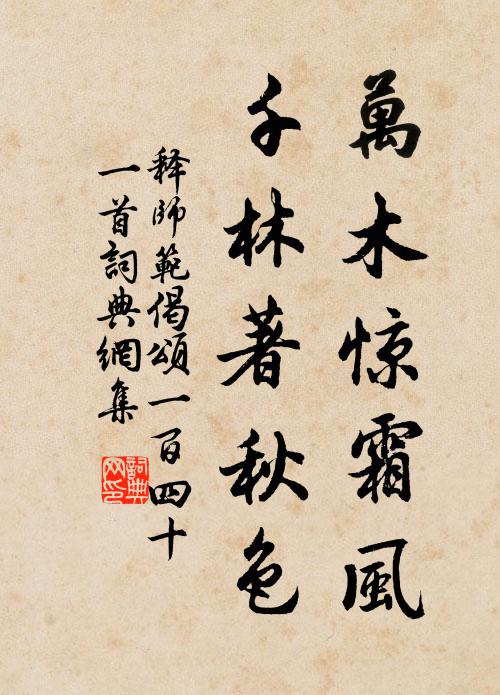 萬木惊霜風
千林著秋色
释師範偈頌一百四十
一首詞典網集
詞典网印